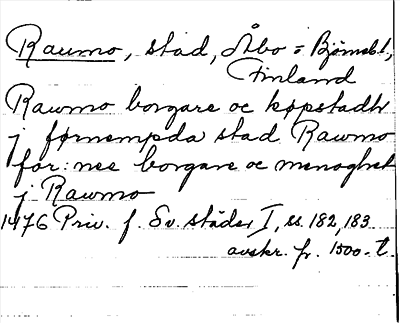 Raumo, stad, Åbo = Björneb.l.,
Finland
Rawmo borgare oc køpstadh
j førnempda stad Rawmo
for:nee borgare oc menoghet
j Rawmo
1476 Priv. f. Sv. städer I, ss. 182, 183
avskr. fr. 1500-t.